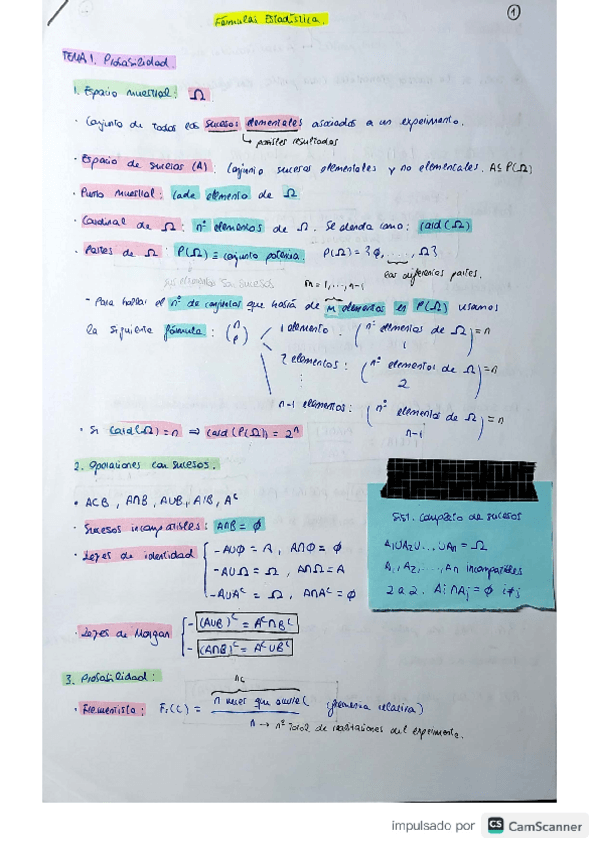 Fórmulas Estadística.
1
TEMA 1. Probabilidad.
1. Espacio muestral: Ω
· Conjunto de todos los sucesos elementales asociados a un experimento.
↳ posibles resultados
· Espacio de sucesos (A): Conjunto sucesos elementales y no elementales. A ⊆ P(Ω)
· Punto muestral: cada elemento de Ω
· Cardinal de Ω: nº elementos de Ω. Se denota como: card(Ω)
· Partes de Ω: P(Ω) ≡ conjunto potencia. P(Ω) = {∅, ....., Ω}
las diferentes partes.
sus elementos son sucesos
m = 1, ..., n-1
- Para hallar el nº de conjuntos que habrá de m elementos en P(Ω) usamos
la siguiente fórmula: (n p)
1 elemento: (nº elementos de Ω 1) = n
2 elementos: (nº elementos de Ω 2) = n
n-1 elementos: (nº elementos de Ω n-1) = n
· Si card(Ω) = n ⇒ card(P(Ω)) = 2ⁿ
2. Operaciones con sucesos.
· A⊂B, A∩B, A∪B, A\B, Aᶜ
· Sucesos incompatibles: A∩B = ∅
· Leyes de identidad
- A∪∅ = A, A∩∅ = ∅
- A∪Ω = Ω, A∩Ω = A
- A∪Aᶜ = Ω, A∩Aᶜ = ∅
Sist. completo de sucesos
A₁∪A₂∪...∪An = Ω
A₁, A₂, ..., An incompatibles
2 a 2. Ai∩Aj = ∅ i≠j
· Leyes de Morgan
- (A∪B)ᶜ = Aᶜ∩Bᶜ
- (A∩B)ᶜ = Aᶜ∪Bᶜ
3. Probabilidad:
nc
· Frecuentista: Fr(C) = n veces que ocurre C (frecuencia relativa)
n → nº total de realizaciones del experimento.
impulsado por CS CamScanner